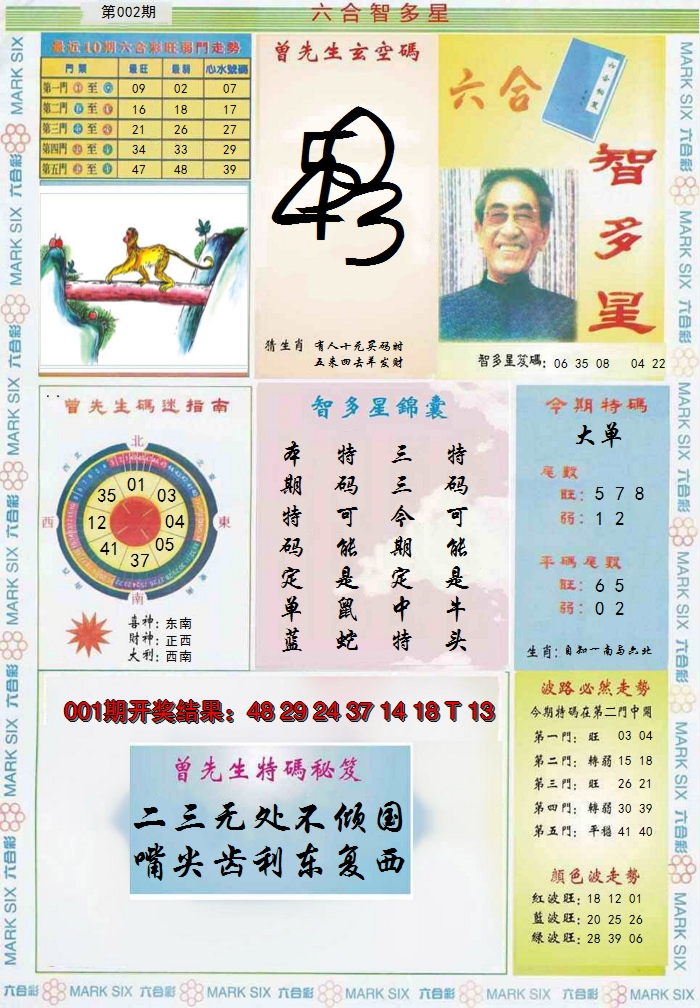 第002期
六合智多星
最近10期六合彩旺弱門走勢
門類 最旺 最弱 心水號碼
第一門 至 09 02 07
第二門 至 16 18 17
第三門 至 21 26 27
第四門 至 34 33 29
第五門 至 47 48 39
曾先生玄空碼
猜生肖 有人十元买码时
五来四去羊发财
六合
智多星
智多星笈碼: 06 35 08 04 22
曾先生碼迷指南
北
東
南
西
01
03
04
05
37
41
12
35
喜神: 东南
财神: 正西
大利: 西南
智多星錦囊
本期特码定单蓝
特码可能是鼠蛇
三三今期定中特
特码可能是牛头
今期特碼
大单
尾數
旺: 5 7 8
弱: 1 2
平碼尾數
旺: 6 5
弱: 0 2
生肖: 自知一南与六北
001期开奖结果: 48 29 24 37 14 18 T 13
曾先生特碼秘笈
二三无处不倾国
嘴尖齿利东复西
波路必然走勢
今期特码在第二門中開
第一門: 旺 03 04
第二門: 轉弱 15 18
第三門: 旺 26 21
第四門: 轉弱 30 39
第五門: 平穩 41 40
顔色波走勢
红波旺: 18 12 01
藍波旺: 20 25 26
绿波旺: 28 39 06
六合彩 MARK SIX